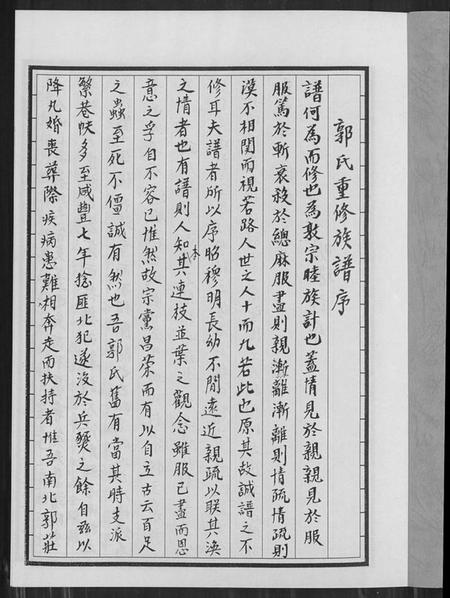 郭氏重修族譜序
譜何為而修也為敦宗睦族計也蓋情見於親親見於服
服篤於斬衰殺於緦麻服盡則親漸離漸離則情疏情疏則
漠不相関而視若路人世之人十而九若此也原其故誠譜之不
修耳夫譜者所以序昭穆明長幼不間遠近親疏以联其渙
之情者也有譜則人知其本連枝並葉之觀念雖服已盡而恩
意之孚自不容已惟然故宗黨昌荣而有以自立古云百足
之蟲至死不僵誠有然也吾郭氏舊有當其時支派
繁卷帙多至咸豐七年捻匪北犯遂没於兵燹之餘自兹以
降凡婚喪葬際疾病患難相奔走而扶持者惟吾南北郭莊